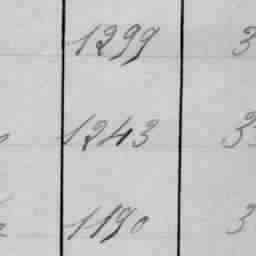 1299 3
1243 3
1190 3